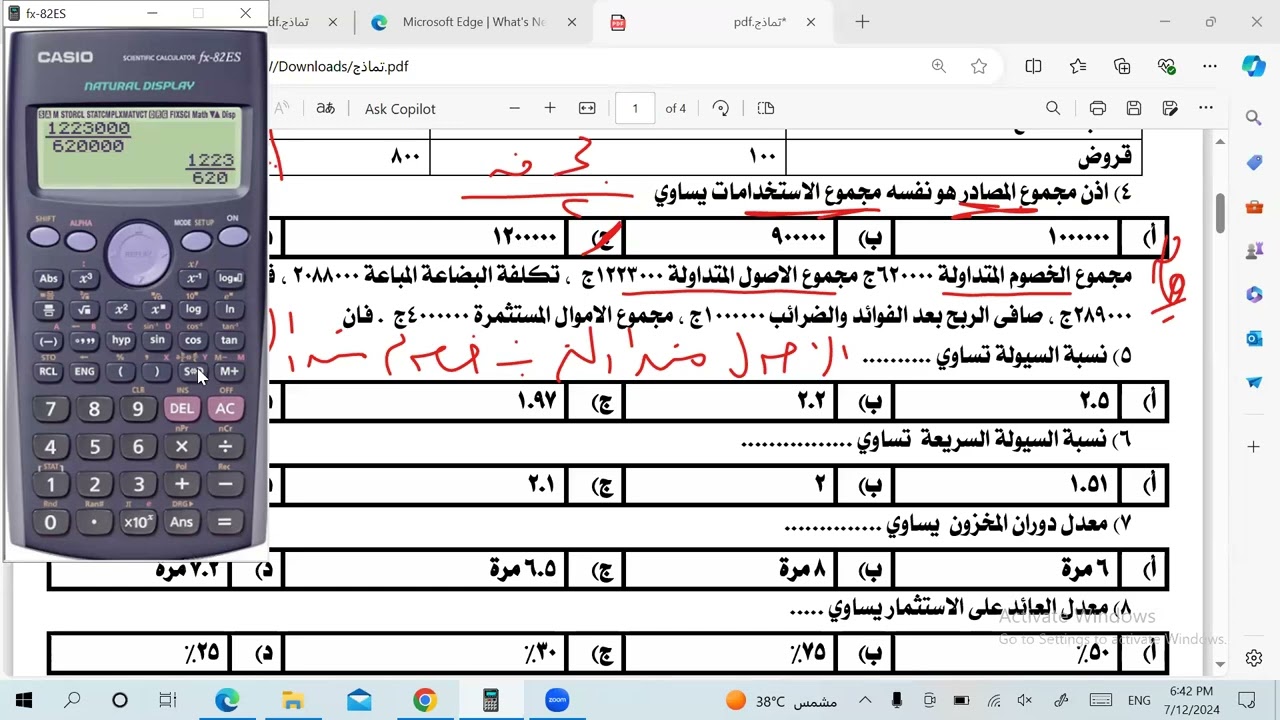 fx-82ES
CASIO
SCIENTIFIC CALCULATOR fx-82ES
NATURAL DISPLAY
1223000
620000
1223
620
SHIFT ALPHA MODE SETUP ON
Abs x³ x⁻¹ log
√ x² log ln
(−) hyp sin cos tan
RCL ENG ( ) S⇔D M+
7 8 9 DEL AC
4 5 6 × ÷
1 2 3 + −
0 . ×10ˣ Ans =
نماذج.pdf
Microsoft Edge | What's Ne
*نماذج.pdf
//Downloads/نماذج.pdf
Ask Copilot
1 of 4
قروض ١٠٠ ٨٠٠
٤) اذن مجموع المصادر هو نفسه مجموع الاستخدامات يساوي
أ) ١٠٠٠٠٠٠ ب) ٩٠٠٠٠٠ ج) ١٢٠٠٠٠٠
مجموع الخصوم المتداولة ٦٢٠٠٠٠ج مجموع الاصول المتداولة ١٢٢٣٠٠٠ج ، تكلفة البضاعة المباعة ٢٠٨٨٠٠٠ ،
٢٨٩٠٠٠ج ، صافى الربح بعد الفوائد والضرائب ١٠٠٠٠٠٠ج ، مجموع الاموال المستثمرة ٤٠٠٠٠٠٠ج . فان
٥) نسبة السيولة تساوي ..........
أ) ٢.٥ ب) ٢.٢ ج) ١.٩٧
٦) نسبة السيولة السريعة تساوي ................
أ) ١.٥١ ب) ٢ ج) ٢.١
٧) معدل دوران المخزون يساوي ..............
أ) ٦ مرة ب) ٨ مرة ج) ٦.٥ مرة د) ٧.٢ مرة
٨) معدل العائد على الاستثمار يساوي .....
أ) ٥٠٪ ب) ٧٥٪ ج) ٣٠٪ د) ٢٥٪
Activate Windows
Go to Settings to activate Windows.
38°C مشمس
ENG
6:42 PM
7/12/2024